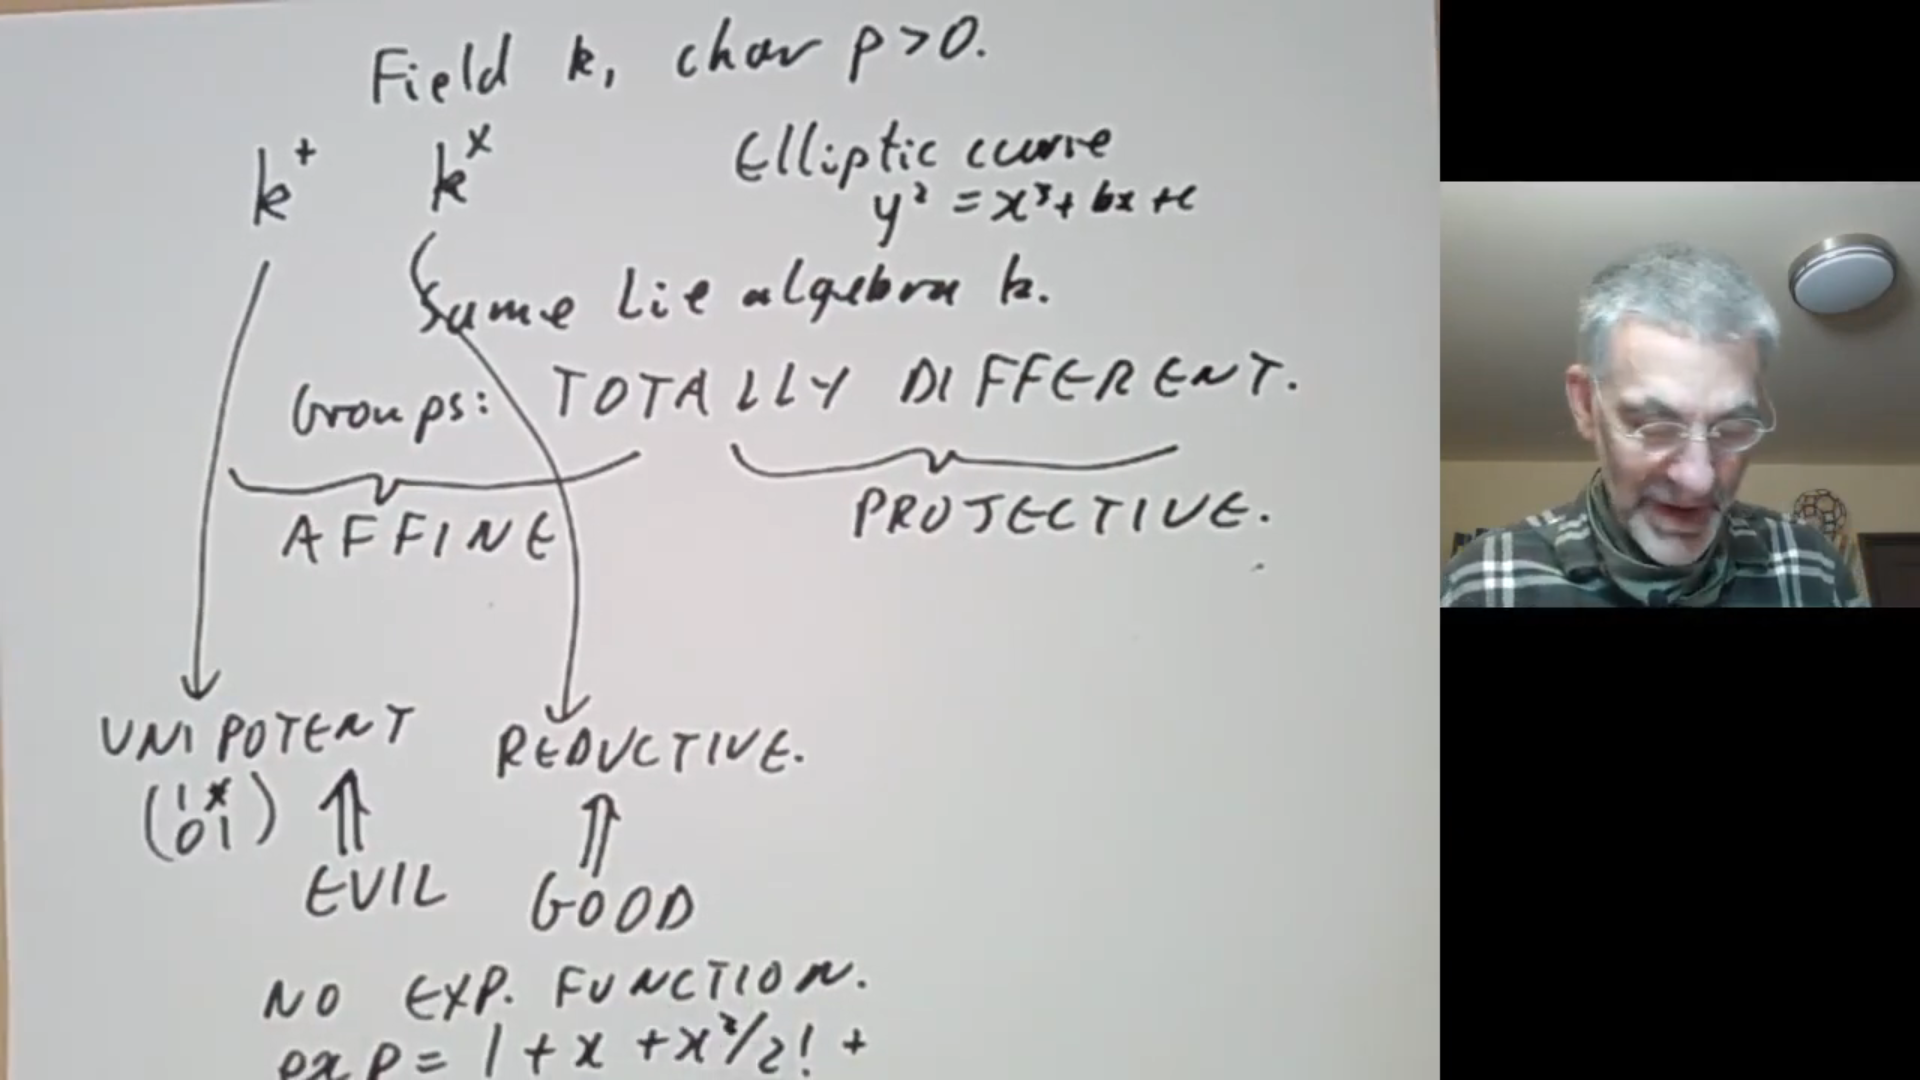 Field k, char p>0.
k⁺ k^x Elliptic curve
y² = x³+ bx +c
Same Lie algebra k.
Groups: TOTALLY DIFFERENT.
AFFINE PROJECTIVE.
UNIPOTENT REDUCTIVE.
(1 * ⇑ ⇑
0 1)
EVIL GOOD
NO EXP. FUNCTION.
exp = 1 + x + x²/2! +